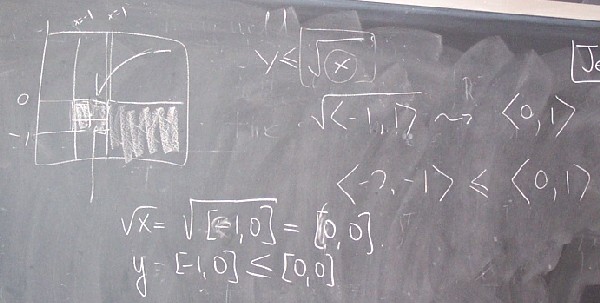 x=-1 x=1
0
-1
y ≤ √x
√⟨-1, 1⟩ ⤳ ⟨0, 1⟩
⟨-2, -1⟩ ≤ ⟨0, 1⟩
√x = √[-1,0] = [0,0].
y = [-1,0] ≤ [0,0]